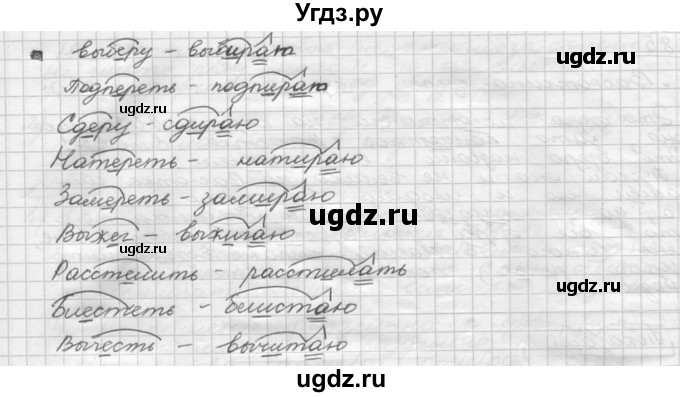 Угдз.ру
выберу – выбираю
ugdz.ru
Подпереть – подпираю
ugdz.ru
ugdz.ru
Сдеру – сдираю
ugdz.ru
Натереть – натираю
Замереть – замираю
ugdz.ru
ugdz.ru
Выжег – выжигаю
Расстелить – расстилать
ugdz.ru
Блестеть – блистаю
ugdz.ru
Вычесть – вычитаю
ugdz.ru